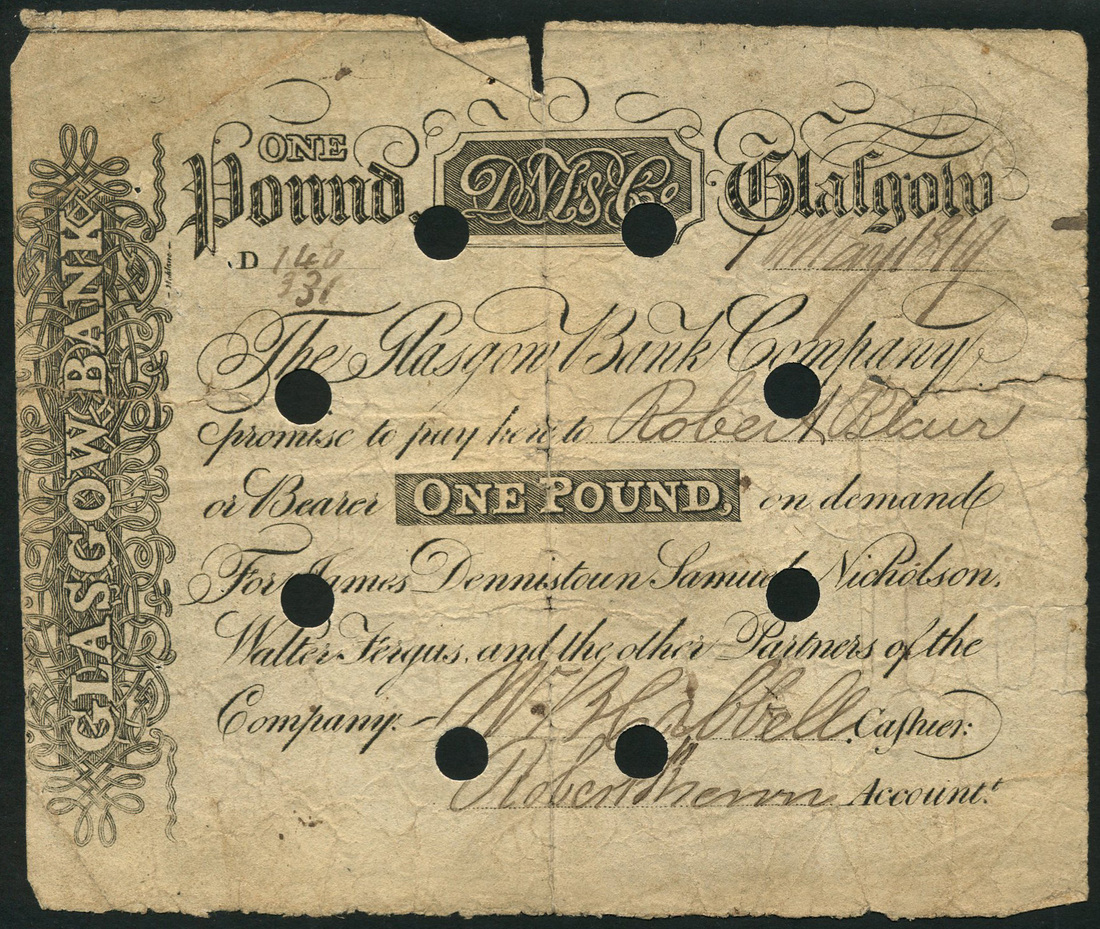 GLASGOW BANK
ONE
Pound. DNFS & Co Glaſgow
D 140 1 May 1819
331
The Glasgow Bank Company
promise to pay here to Robert Blair
or Bearer ONE POUND, on demand
For James Dennistoun Samuel Nicholson,
Walter Fergus, and the other Partners of the
Company.
Caſhier:
Robert Account.t